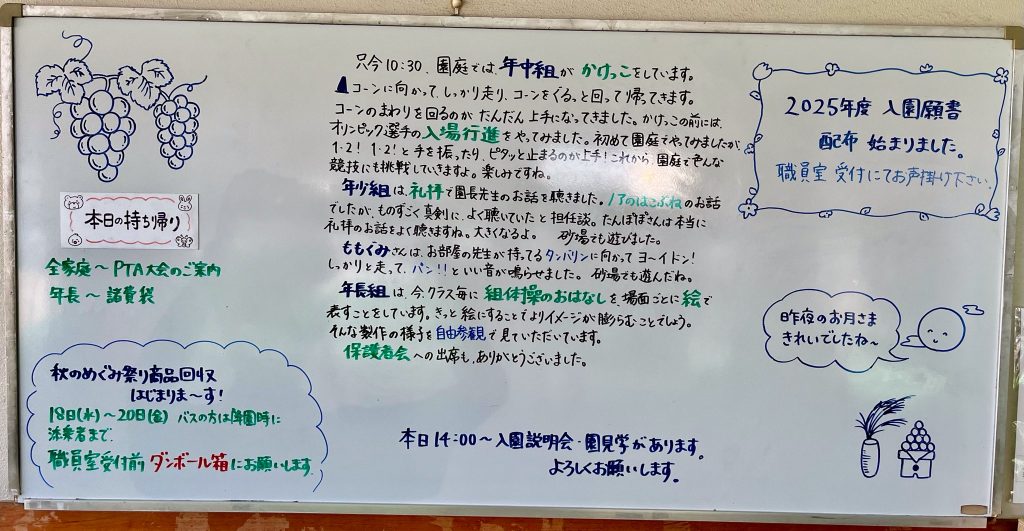 只今10:30、園庭では、年中組が かけっこをしています。
コーンに向かって、しっかり走り、コーンをぐるっと回って帰ってきます。
コーンのまわりを回るのが だんだん上手になってきました。かけっこの前には、
オリンピック選手の入場行進をやってみました。初めて園庭でやってみましたが、
1・2! 1・2!と手を振ったり、ピタッと止まるのが上手!これから、園庭で色んな
競技にも挑戦していきますよ。楽しみですね。
年少組は、礼拝で園長先生のお話を聴きました。ノアのはこぶねのお話
でしたが、ものすごく真剣に、よく聴いていたと担任談。たんぽぽさんは本当に
礼拝のお話をよく聴きますね。大きくなるよ。 砂場でも遊びました。
ももぐみさんは、お部屋の先生が持ってるタンバリンに向かって ヨーイドン!
しっかりと走って、パン!!といい音が鳴らせました。砂場でも遊んだね。
年長組は、今、クラス毎に組体操のおはなしを場面ごとに絵で
表すことをしています。きっと絵にすることでよりイメージが膨らむことでしょう。
そんな製作の様子を自由参観で見ていただいています。
保護者会への出席も、ありがとうございました。
本日14:00〜入園説明会・園見学があります。
よろしくお願いします。
本日の持ち帰り
全家庭〜PTA大会のご案内
年長〜諸費袋
秋のめぐみ祭り商品回収
はじまりま〜す!
18日(水)〜20日(金) バスの方は降園時に
添乗者まで、
職員室受付前 ダンボール箱にお願いします。
2025年度 入園願書
配布 始まりました。
職員室 受付にてお声掛け下さい。
昨夜のお月さま
きれいでしたね〜